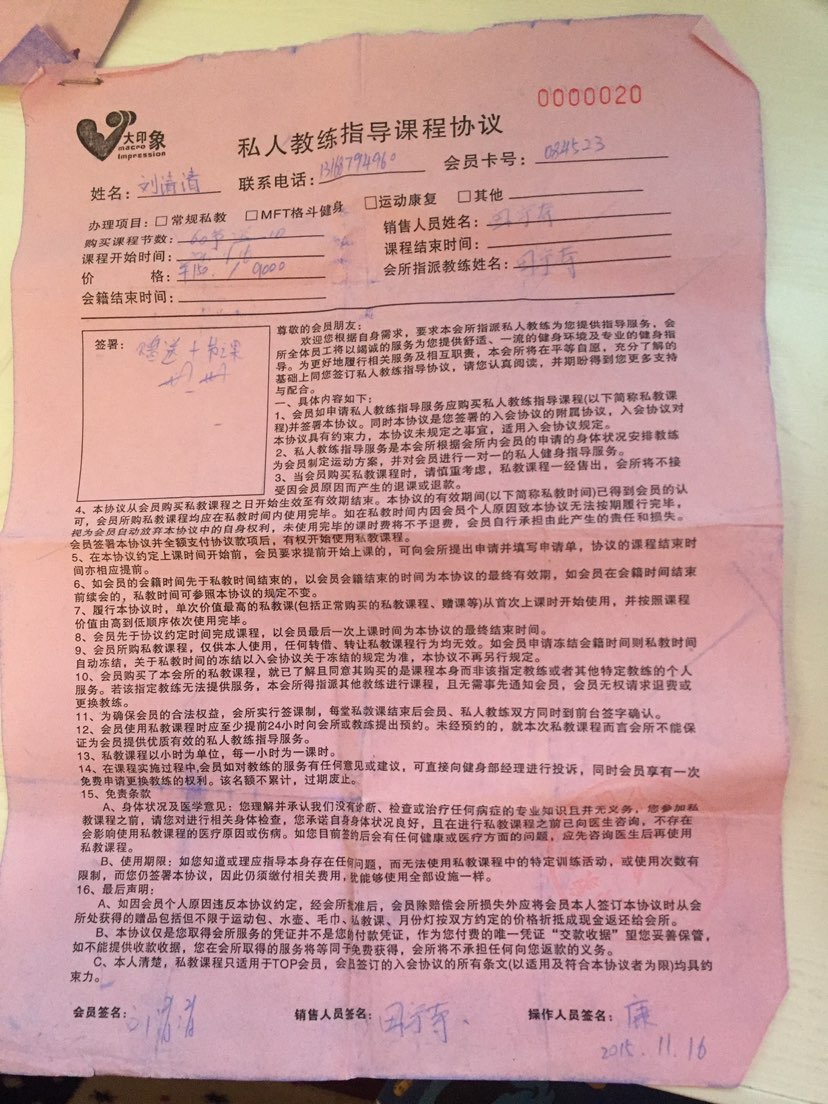 0000020
大印象
macro
Impression
私人教练指导课程协议
姓名： 联系电话： 会员卡号：084523
办理项目：□常规私教 □MFT格斗健身 □运动康复 □其他
购买课程节数： 销售人员姓名：
课程开始时间： 课程结束时间：
价 格： 9000 会所指派教练姓名：
会籍结束时间：
签署：赠送十节课
尊敬的会员朋友：
欢迎您根据自身需求，要求本会所指派私人教练为您提供指导服务，会
所全体员工将以竭诚的服务为您提供舒适、一流的健身环境及专业的健身指
导。为更好地履行相关服务及相互职责，本会所将在平等自愿，充分了解的
基础上同您签订私人教练指导协议，请您认真阅读，并期盼得到您更多支持
与配合。
一、具体内容如下：
1、会员如申请私人教练指导服务应购买私人教练指导课程(以下简称私教课
程)并签署本协议。同时本协议是您签署的入会协议的附属协议，入会协议对
本协议具有约束力，本协议未规定之事宜，适用入会协议规定。
2、私人教练指导服务是本会所根据会所内会员的申请的身体状况安排教练
为会员制定运动方案，并对会员进行一对一的私人健身指导服务。
3、当会员购买私教课程时，请慎重考虑，私教课程一经售出，会所将不接
受因会员原因而产生的退课或退款。
4、本协议从会员购买私教课程之日开始生效至有效期结束。本协议的有效期间(以下简称私教时间)已得到会员的认
可，会员所购私教课程均应在私教时间内使用完毕。如在私教时间内因会员个人原因致本协议无法按期履行完毕，
视为会员自动放弃本协议中的自身权利，未使用完毕的课时费将不予退费，会员自行承担由此产生的责任和损失。
会员签署本协议并全额支付协议款项后，有权开始使用私教课程。
5、在本协议约定上课时间开始前，会员要求提前开始上课的，可向会所提出申请并填写申请单，协议的课程结束时
间亦相应提前。
6、如会员的会籍时间先于私教时间结束的，以会员会籍结束的时间为本协议的最终有效期，如会员在会籍时间结束
前续会的，私教时间可参照本协议的规定不变。
7、履行本协议时，单次价值最高的私教课(包括正常购买的私教课程、赠课等)从首次上课时开始使用，并按照课程
价值由高到低顺序依次使用完毕。
8、会员先于协议约定时间完成课程，以会员最后一次上课时间为本协议的最终结束时间。
9、会员所购私教课程，仅供本人使用，任何转借、转让私教课程行为均无效。如会员申请冻结会籍时间则私教时间
自动冻结，关于私教时间的冻结以入会协议关于冻结的规定为准，本协议不再另行规定。
10、会员购买了本会所的私教课程，就已了解且同意其购买的是课程本身而非该指定教练或者其他特定教练的个人
服务。若该指定教练无法提供服务，本会所得指派其他教练进行课程，且无需事先通知会员，会员无权请求退费或
更换教练。
11、为确保会员的合法权益，会所实行签课制，每堂私教课结束后会员、私人教练双方同时到前台签字确认。
12、会员使用私教课程时应至少提前24小时向会所或教练提出预约。未经预约的，就本次私教课程而言会所不能保
证为会员提供优质有效的私人教练指导服务。
13、私教课程以小时为单位，每一小时为一课时。
14、在课程实施过程中,会员如对教练的服务有任何意见或建议，可直接向健身部经理进行投诉，同时会员享有一次
免费申请更换教练的权利。该名额不累计，过期废止。
15、免责条款
A、身体状况及医学意见：您理解并承认我们没有诊断、检查或治疗任何病症的专业知识且并无义务，您参加私
教课程之前，请您对进行相关身体检查，您承诺自身身体状况良好，且在进行私教课程之前已向医生咨询，不存在
会影响使用私教课程的医疗原因或伤病。如您目前签约后会有任何健康或医疗方面的问题，应先咨询医生后再使用
私教课程。
B、使用期限：如您知道或理应指导本身存在任何问题，而无法使用私教课程中的特定训练活动，或使用次数有
限制，而您仍签署本协议，因此仍须缴付相关费用，就能够使用全部设施一样。
16、最后声明：
A、如因会员个人原因违反本协议约定，经会所批准后，会员除赔偿会所损失外应将会员本人签订本协议时从会
所处获得的赠品包括但不限于运动包、水壶、毛巾、私教课、月份灯按双方约定的价格折抵成现金返还给会所。
B、本协议仅是您取得会所服务的凭证并不是您的付款凭证，作为您付费的唯一凭证“交款收据”望您妥善保管，
如不能提供收款收据，您在会所取得的服务将等同于免费获得，会所将不承担任何向您返款的义务。
C、本人清楚，私教课程只适用于TOP会员，会员签订的入会协议的所有条文(以适用及符合本协议者为限)均具约
束力。
会员签名： 销售人员签名： 操作人员签名：康
2015.11.16